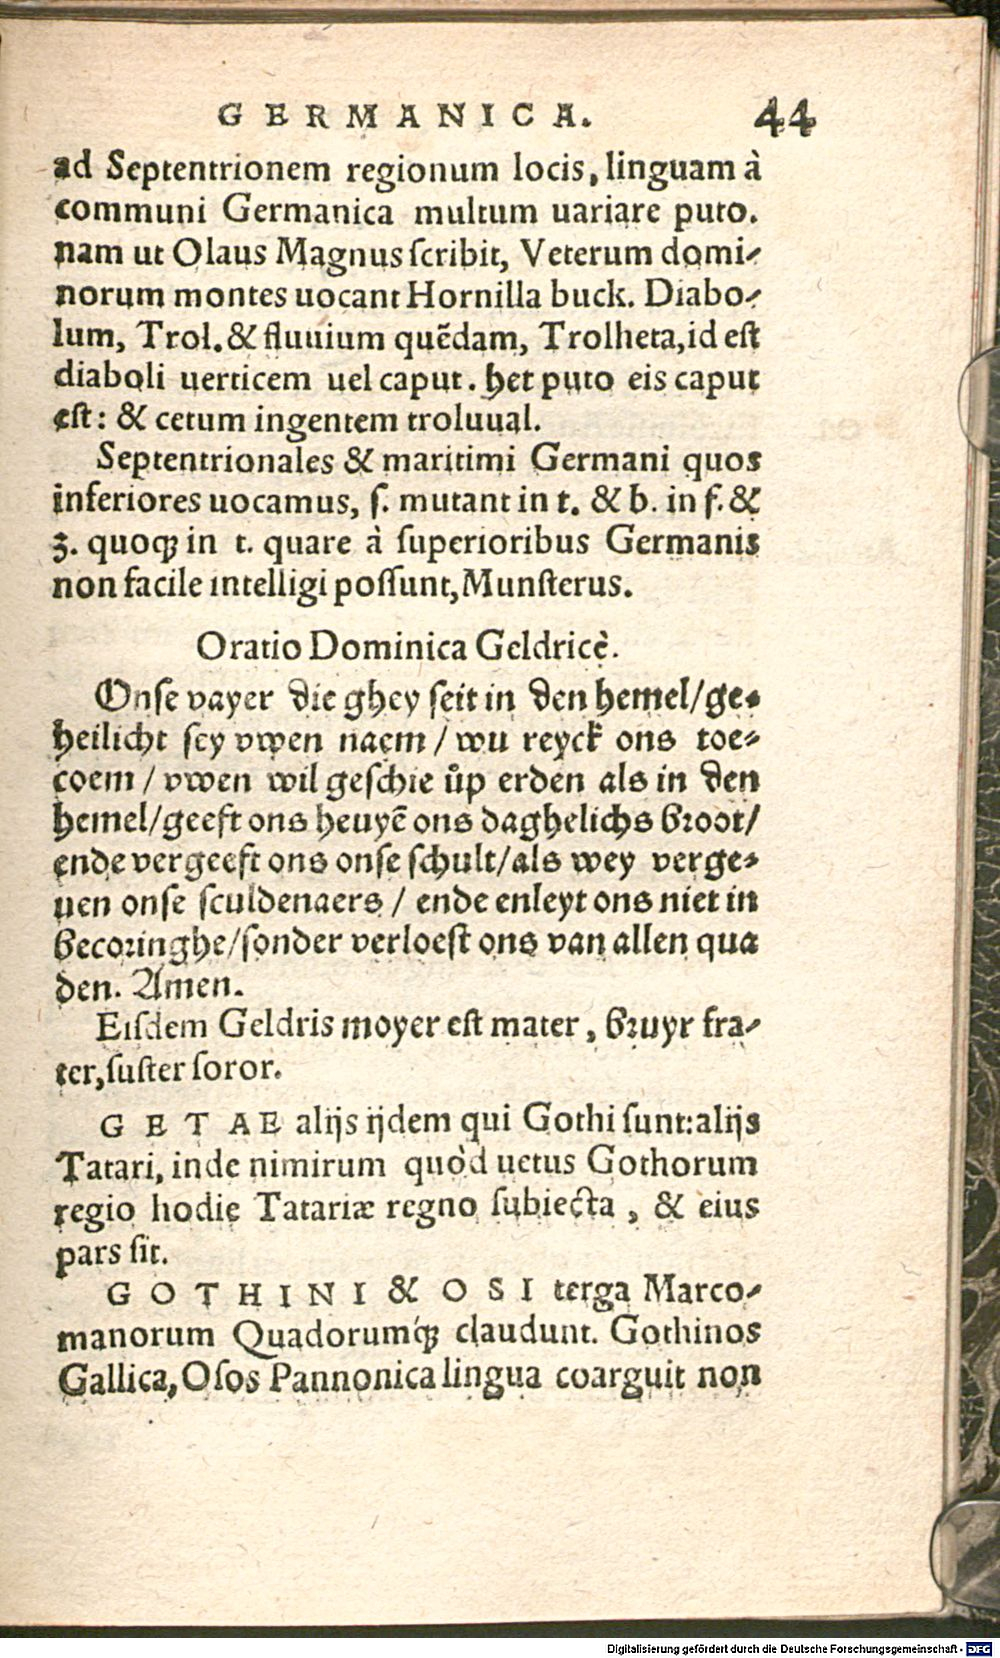 GERMANICA. 44
ad Septentrionem regionum locis, linguam à
communi Germanica multum uariare puto.
nam ut Olaus Magnus ſcribit, Veterum domi-
norum montes uocant Hornilla buck. Diabo-
lum, Trol. & fluuium quẽdam, Trolheta, id eſt
diaboli uerticem uel caput. het puto eis caput
eſt: & cetum ingentem troluual.
Septentrionales & maritimi Germani quos
inferiores uocamus, ſ. mutant in t. & b. in f. &
z. quoqꝫ in t. quare à ſuperioribus Germanis
non facile intelligi poſſunt, Munſterus.
Oratio Dominica Geldricè.
Onſe vayer die ghey ſeit in den hemel/ge-
heilicht ſey vwen naem / wu reyck ons toe-
coem / vwen wil geſchie ůp erden als in den
hemel/geeft ons heuyẽ ons daghelichs broot/
ende vergeeft ons onſe ſchult/als wey verge-
uen onſe ſculdenaers / ende enleyt ons niet in
becoringhe/ſonder verloeſt ons van allen qua
den. Amen.
Eiſdem Geldris moyer eſt mater, bruyr fra-
ter, ſuſter ſoror.
GETAE alijs ijdem qui Gothi ſunt: alijs
Tatari, inde nimirum quòd uetus Gothorum
regio hodie Tatariæ regno ſubiecta, & eius
pars ſit.
GOTHINI & OSI terga Marco-
manorum Quadorumqꝫ́ claudunt. Gothinos
Gallica, Oſos Pannonica lingua coarguit non
Digitalisierung gefördert durch die Deutsche Forschungsgemeinschaft - DFG